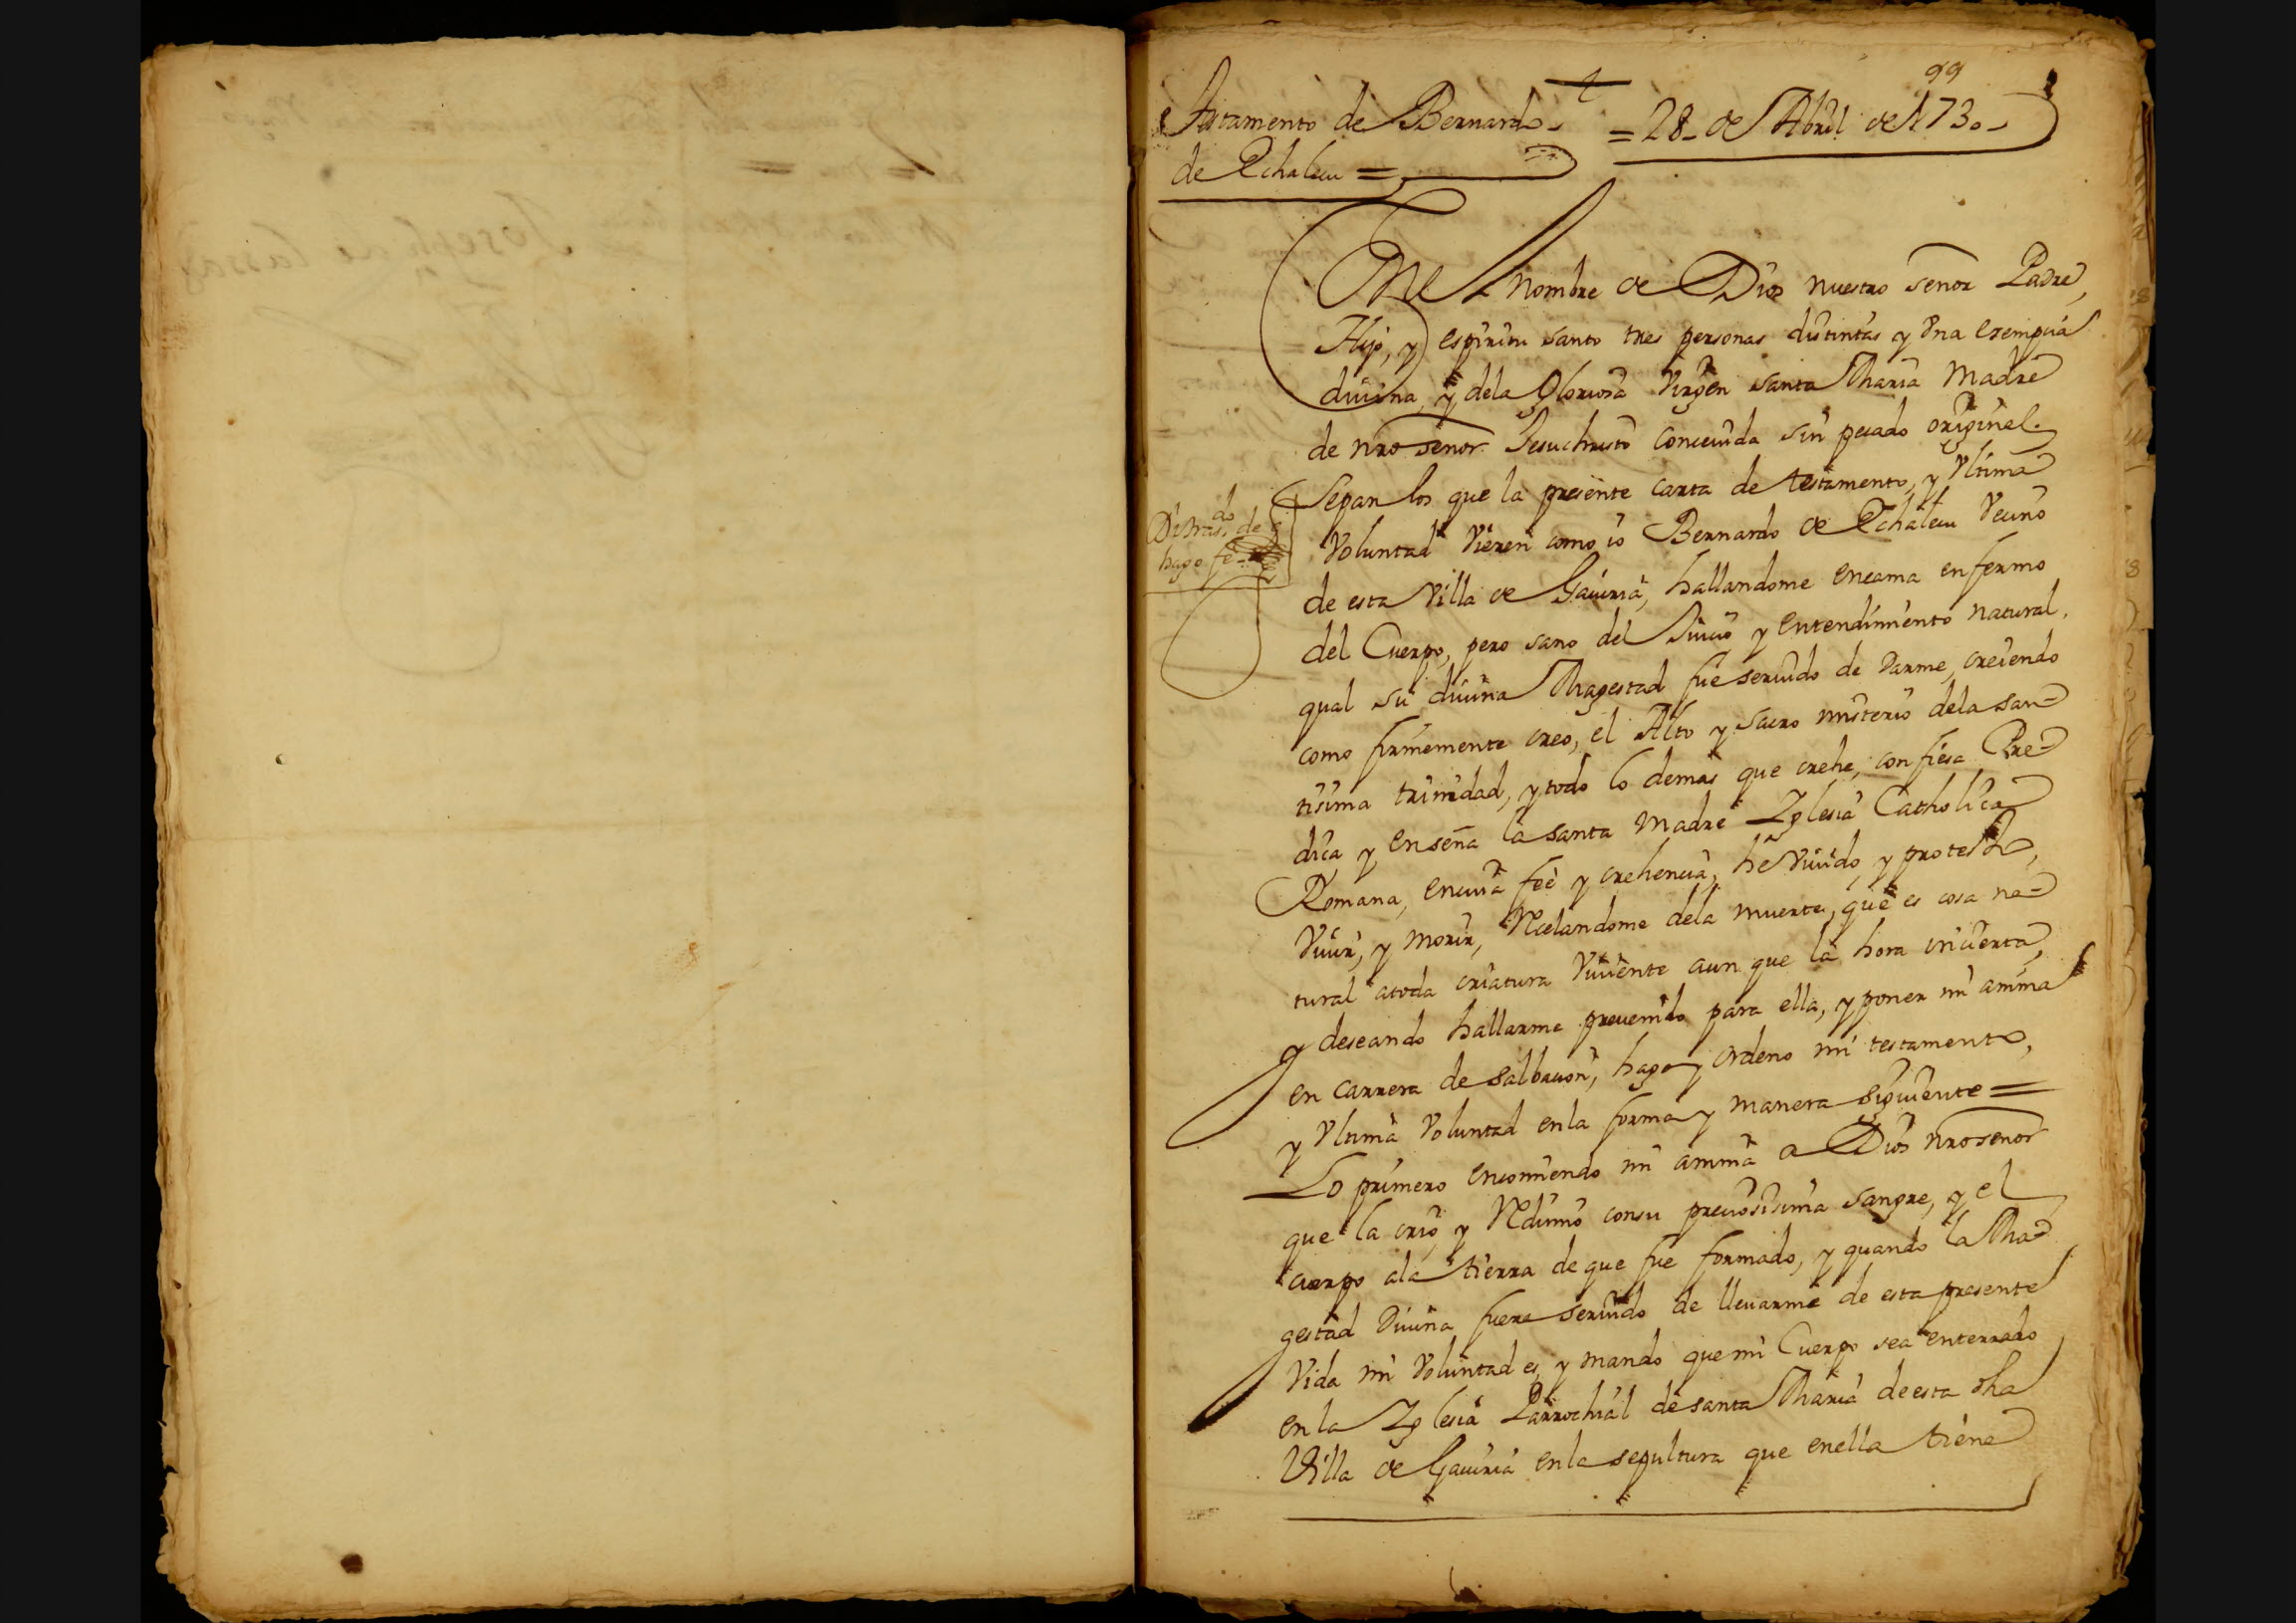 99
Testamento de Bernardo = 28 de Abril de 1730
de Echalecu =
En el nombre de Dios nuestro señor Padre,
Hijo, y espiritu santo tres personas distintas y Vna esempcia
diuina, y dela Gloriosa Virgen santa Maria Madre
de nro senor Jesuchristo conceuida sin pecado original.
Sepan los que la presente carta de testamento, y Vltima
Voluntad Vieren como io Bernardo de Echalecu Vecino
de esta Villa de Gauiria, hallandome encama enfermo
del Cuerpo, pero sano del Juicio y entendimiento natural,
qual su diuina Magestad fue seruido de Darme, creiendo
como firmemente creo, el Alto y Sacro misterio dela san=
tisima trinidad, y todo lo demas que crehe, confiesa Pre=
dica y enseña la santa Madre Iglesia Catholica
Romana, encuia feè y crehencia, he Viuido, y protesto,
Viuir, y morir, Recelandome dela muerte, que es cosa na=
tural atoda criatura Viuiente aun que la hora incierta,
y deseando hallarme preuenido para ella, y poner mi anima
en carrera de salbacion, hago y ordeno mi testamento,
y Vltima Voluntad enla forma y manera siguiente =
Lo primero encomiendo mi anima a Dios nro senor
que la crio, y Redimio consu preciosisima sangre, y el
cuerpo ala tierra de que fue formado, y quando la Ma=
gestad Diuina fuere seruido de lleuarme de esta presente
Vida mi Voluntad es, y mando que mi Cuerpo sea enterrado
en la Iglesia Parrochial de santa Maria de esta dha
Villa de Gauiria enla sepultura que enella tiene
hago fe